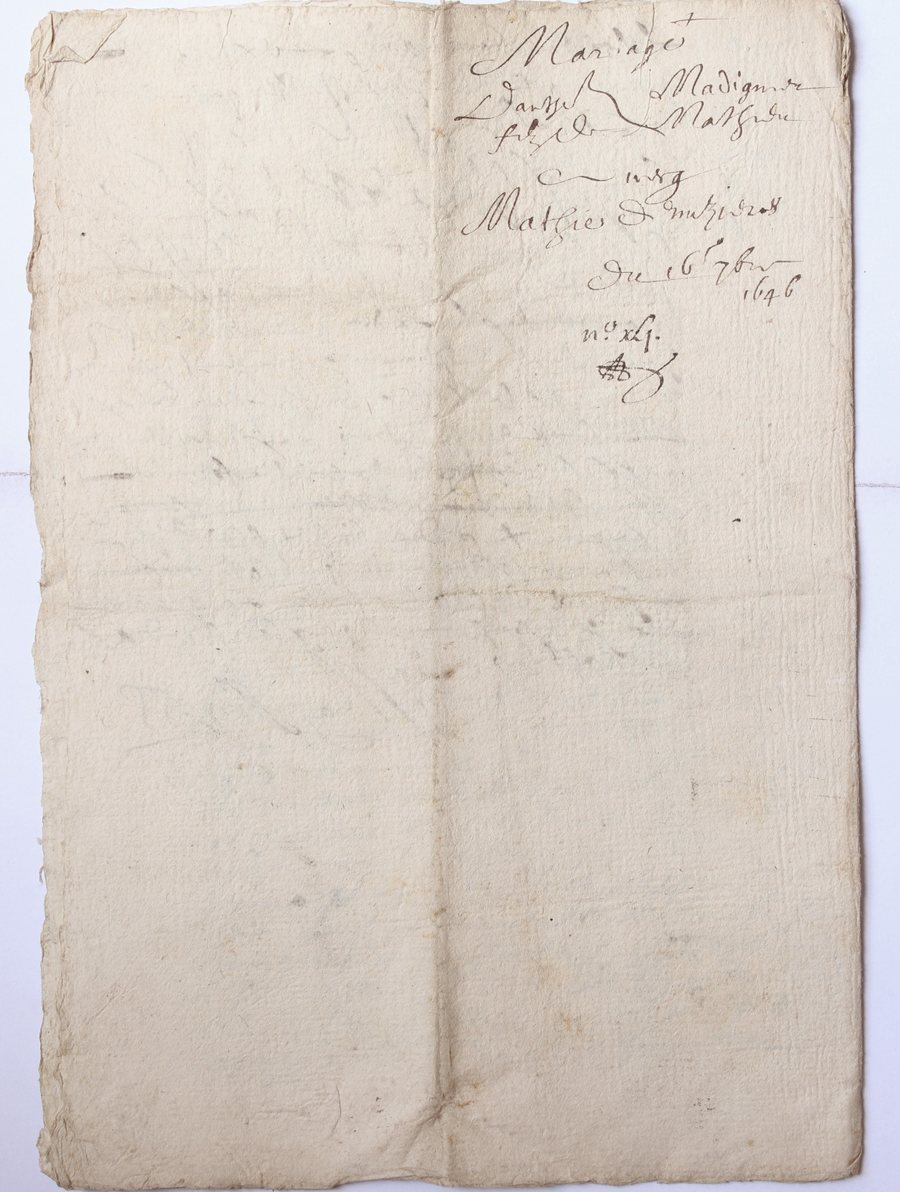 Mariage
Danthel Madignier
filz de Mathieu
et
Mathie Demezieres
Du 16e 7bre
1646
n.o xlj.